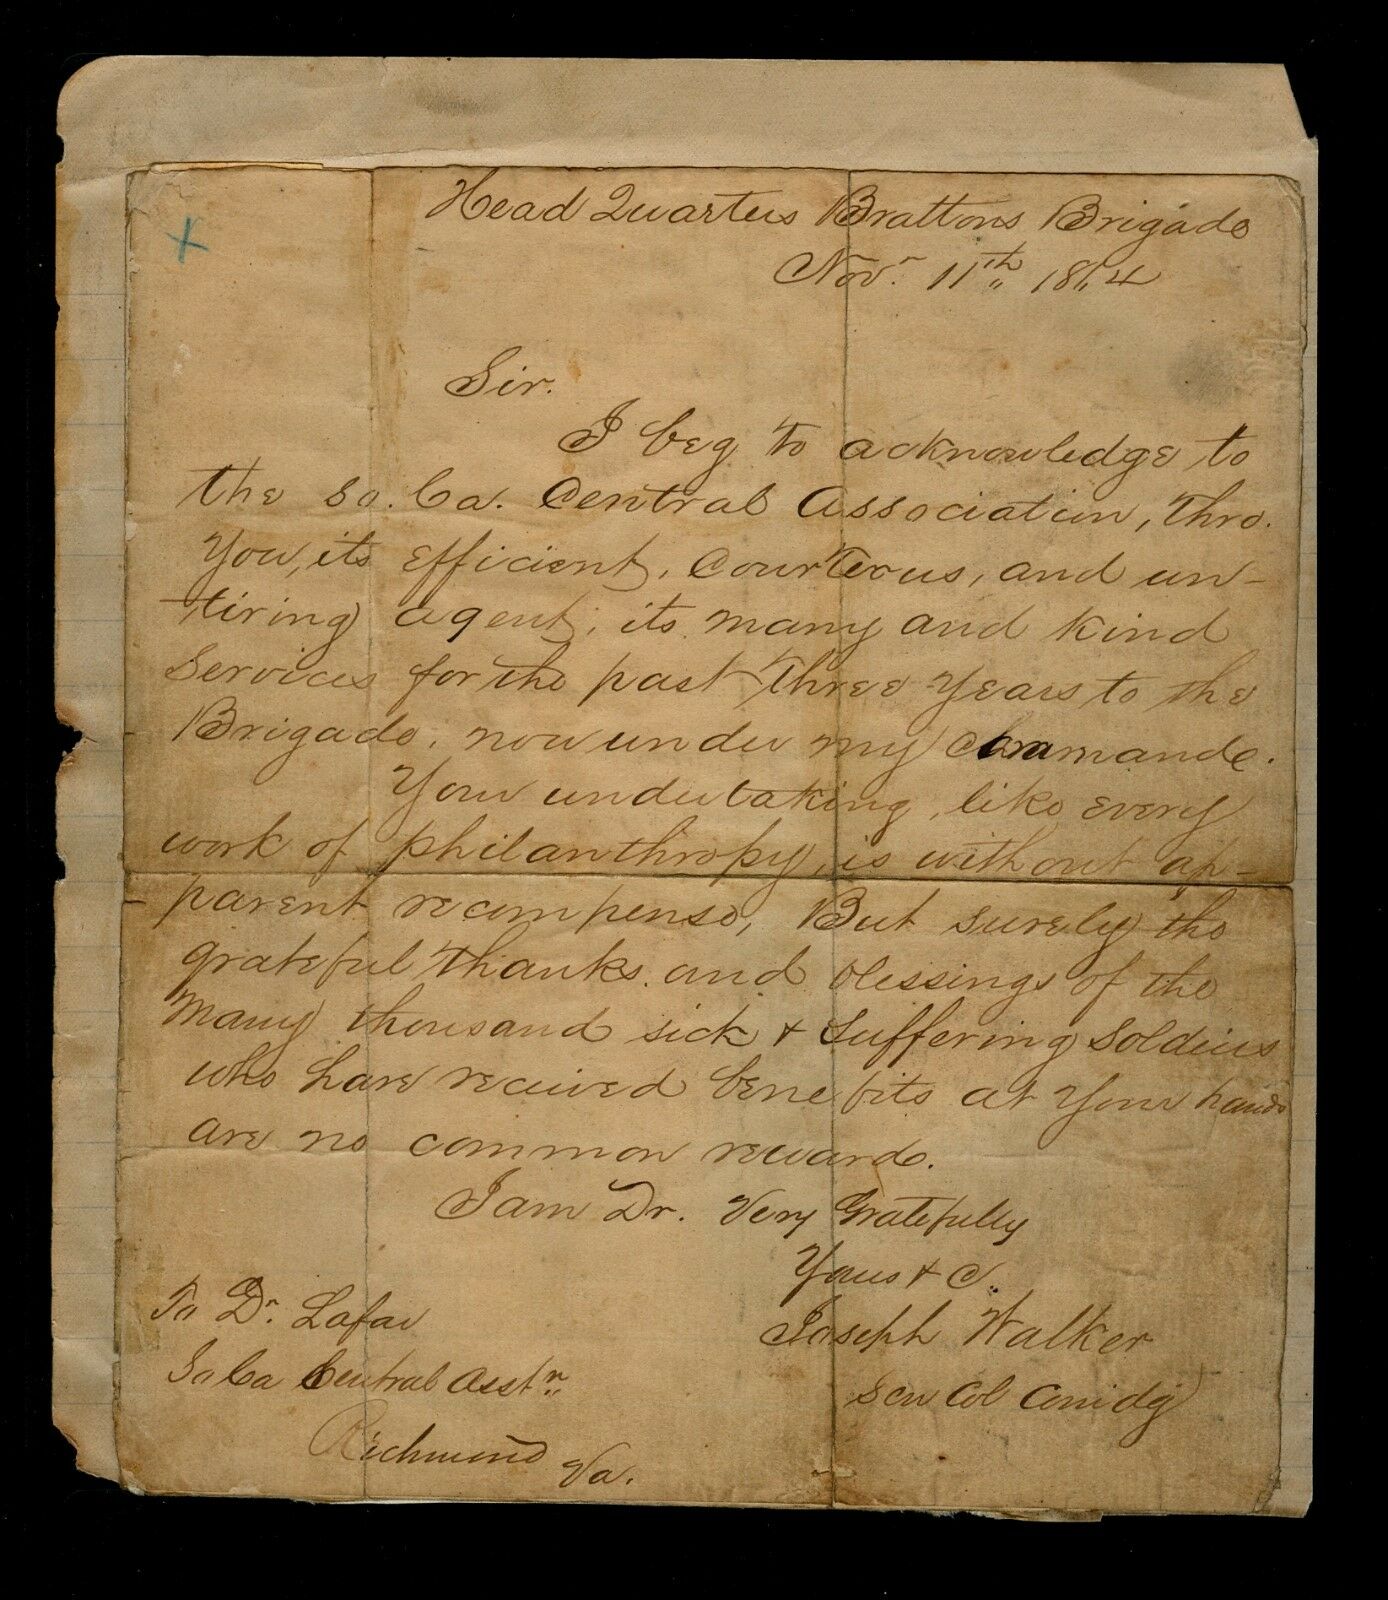 Head Quarters Brattons Brigade
Novr. 11th 1864
Sir.
I beg to acknowledge to
the So. Ca. Central Association, thro.
You, its efficient, Courteous, and un-
tiring agent, its many and kind
Services for the past three Years to the
Brigade, now under my Command.
Your undertaking, like every
work of philanthropy, is without ap-
parent recompense, But surely the
grateful thanks and blessings of the
many thousand sick + Suffering Soldiers
who have received benefits at Your hands
are no common reward.
I am Dr. Very Gratefully
Yours + C.
Joseph Walker
Sen Col Comdg
To Dr. Lafar
So Ca Central Asstn.
Richmond Va.